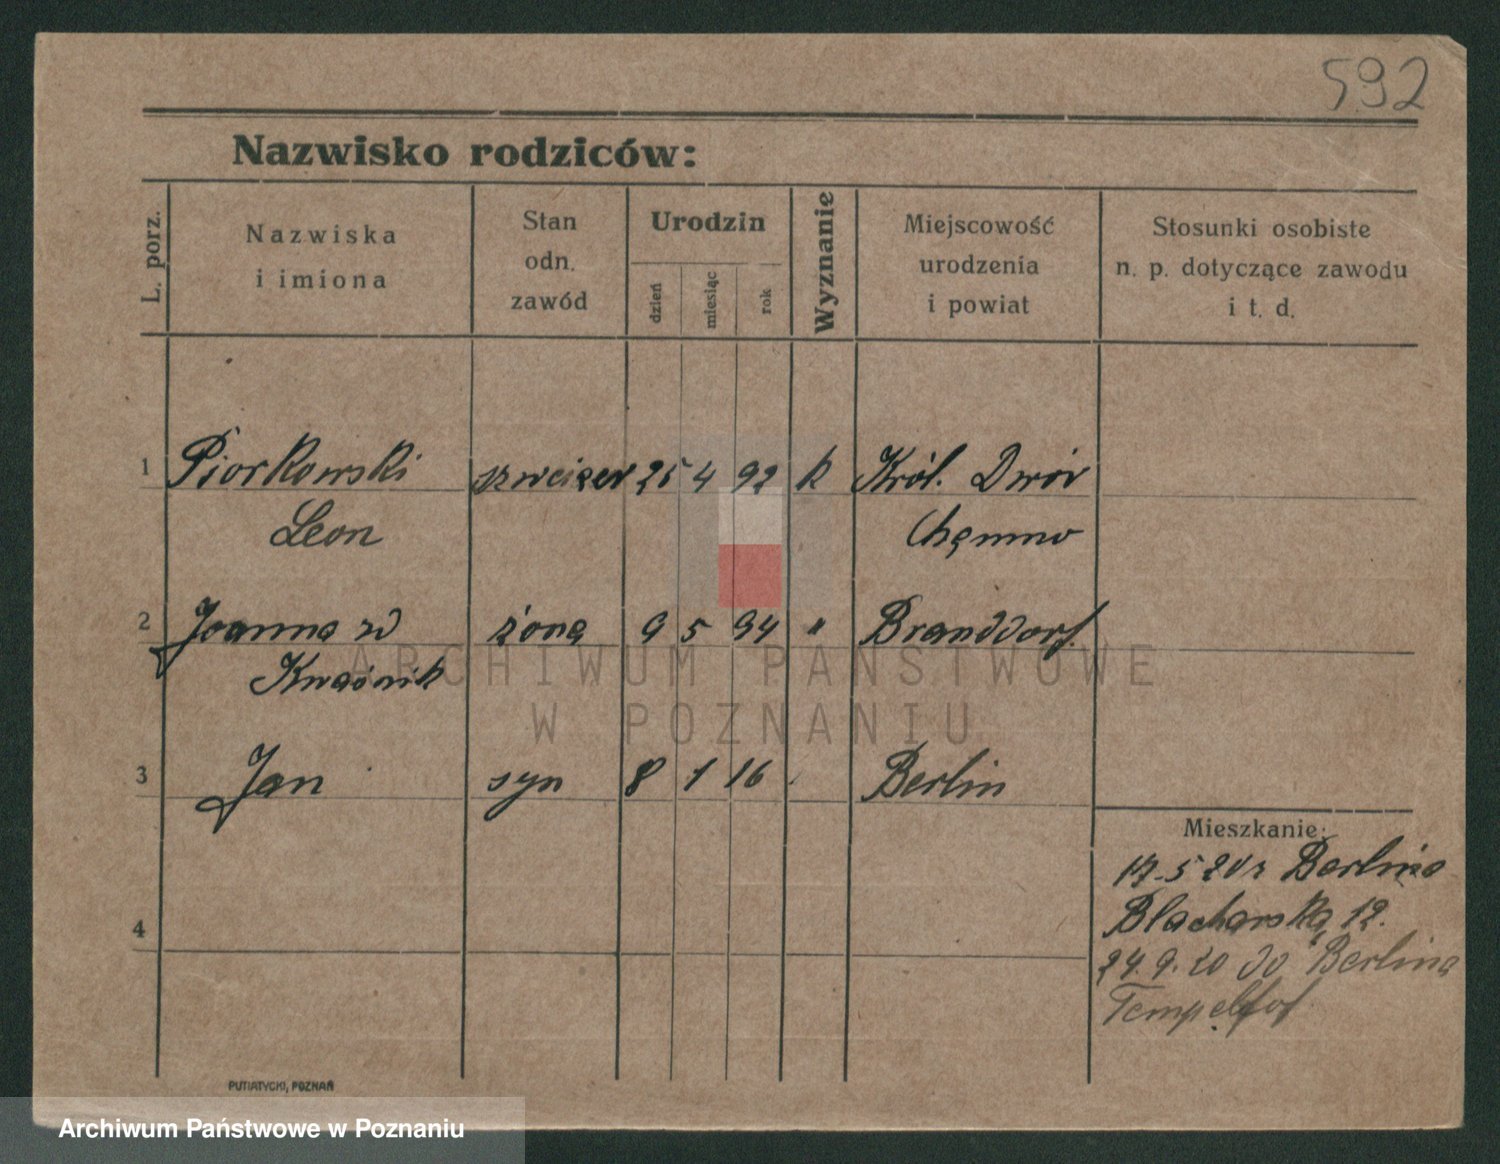 592
Nazwisko rodziców:
L. porz.
Nazwiska
i imiona
Stan
odn.
zawód
Urodzin
dzień
miesiąc
rok
Wyznanie
Miejscowość
urodzenia
i powiat
Stosunki osobiste
n. p. dotyczące zawodu
i t. d.
1 Piorkowski szweizer 25 4 92 k Król. Dwór
Leon
2 Joanna żona 9 5 94 " Branddorf
3 Jan syn 8 1 16 Berlin
Mieszkanie:
17.5 20 z Berlina
Blacharska 12.
4
24.9.20 do Berlina
PUTIATYCKI, POZNAŃ
ARCHIWUM PAŃSTWOWE
W POZNANIU
Archiwum Państwowe w Poznaniu